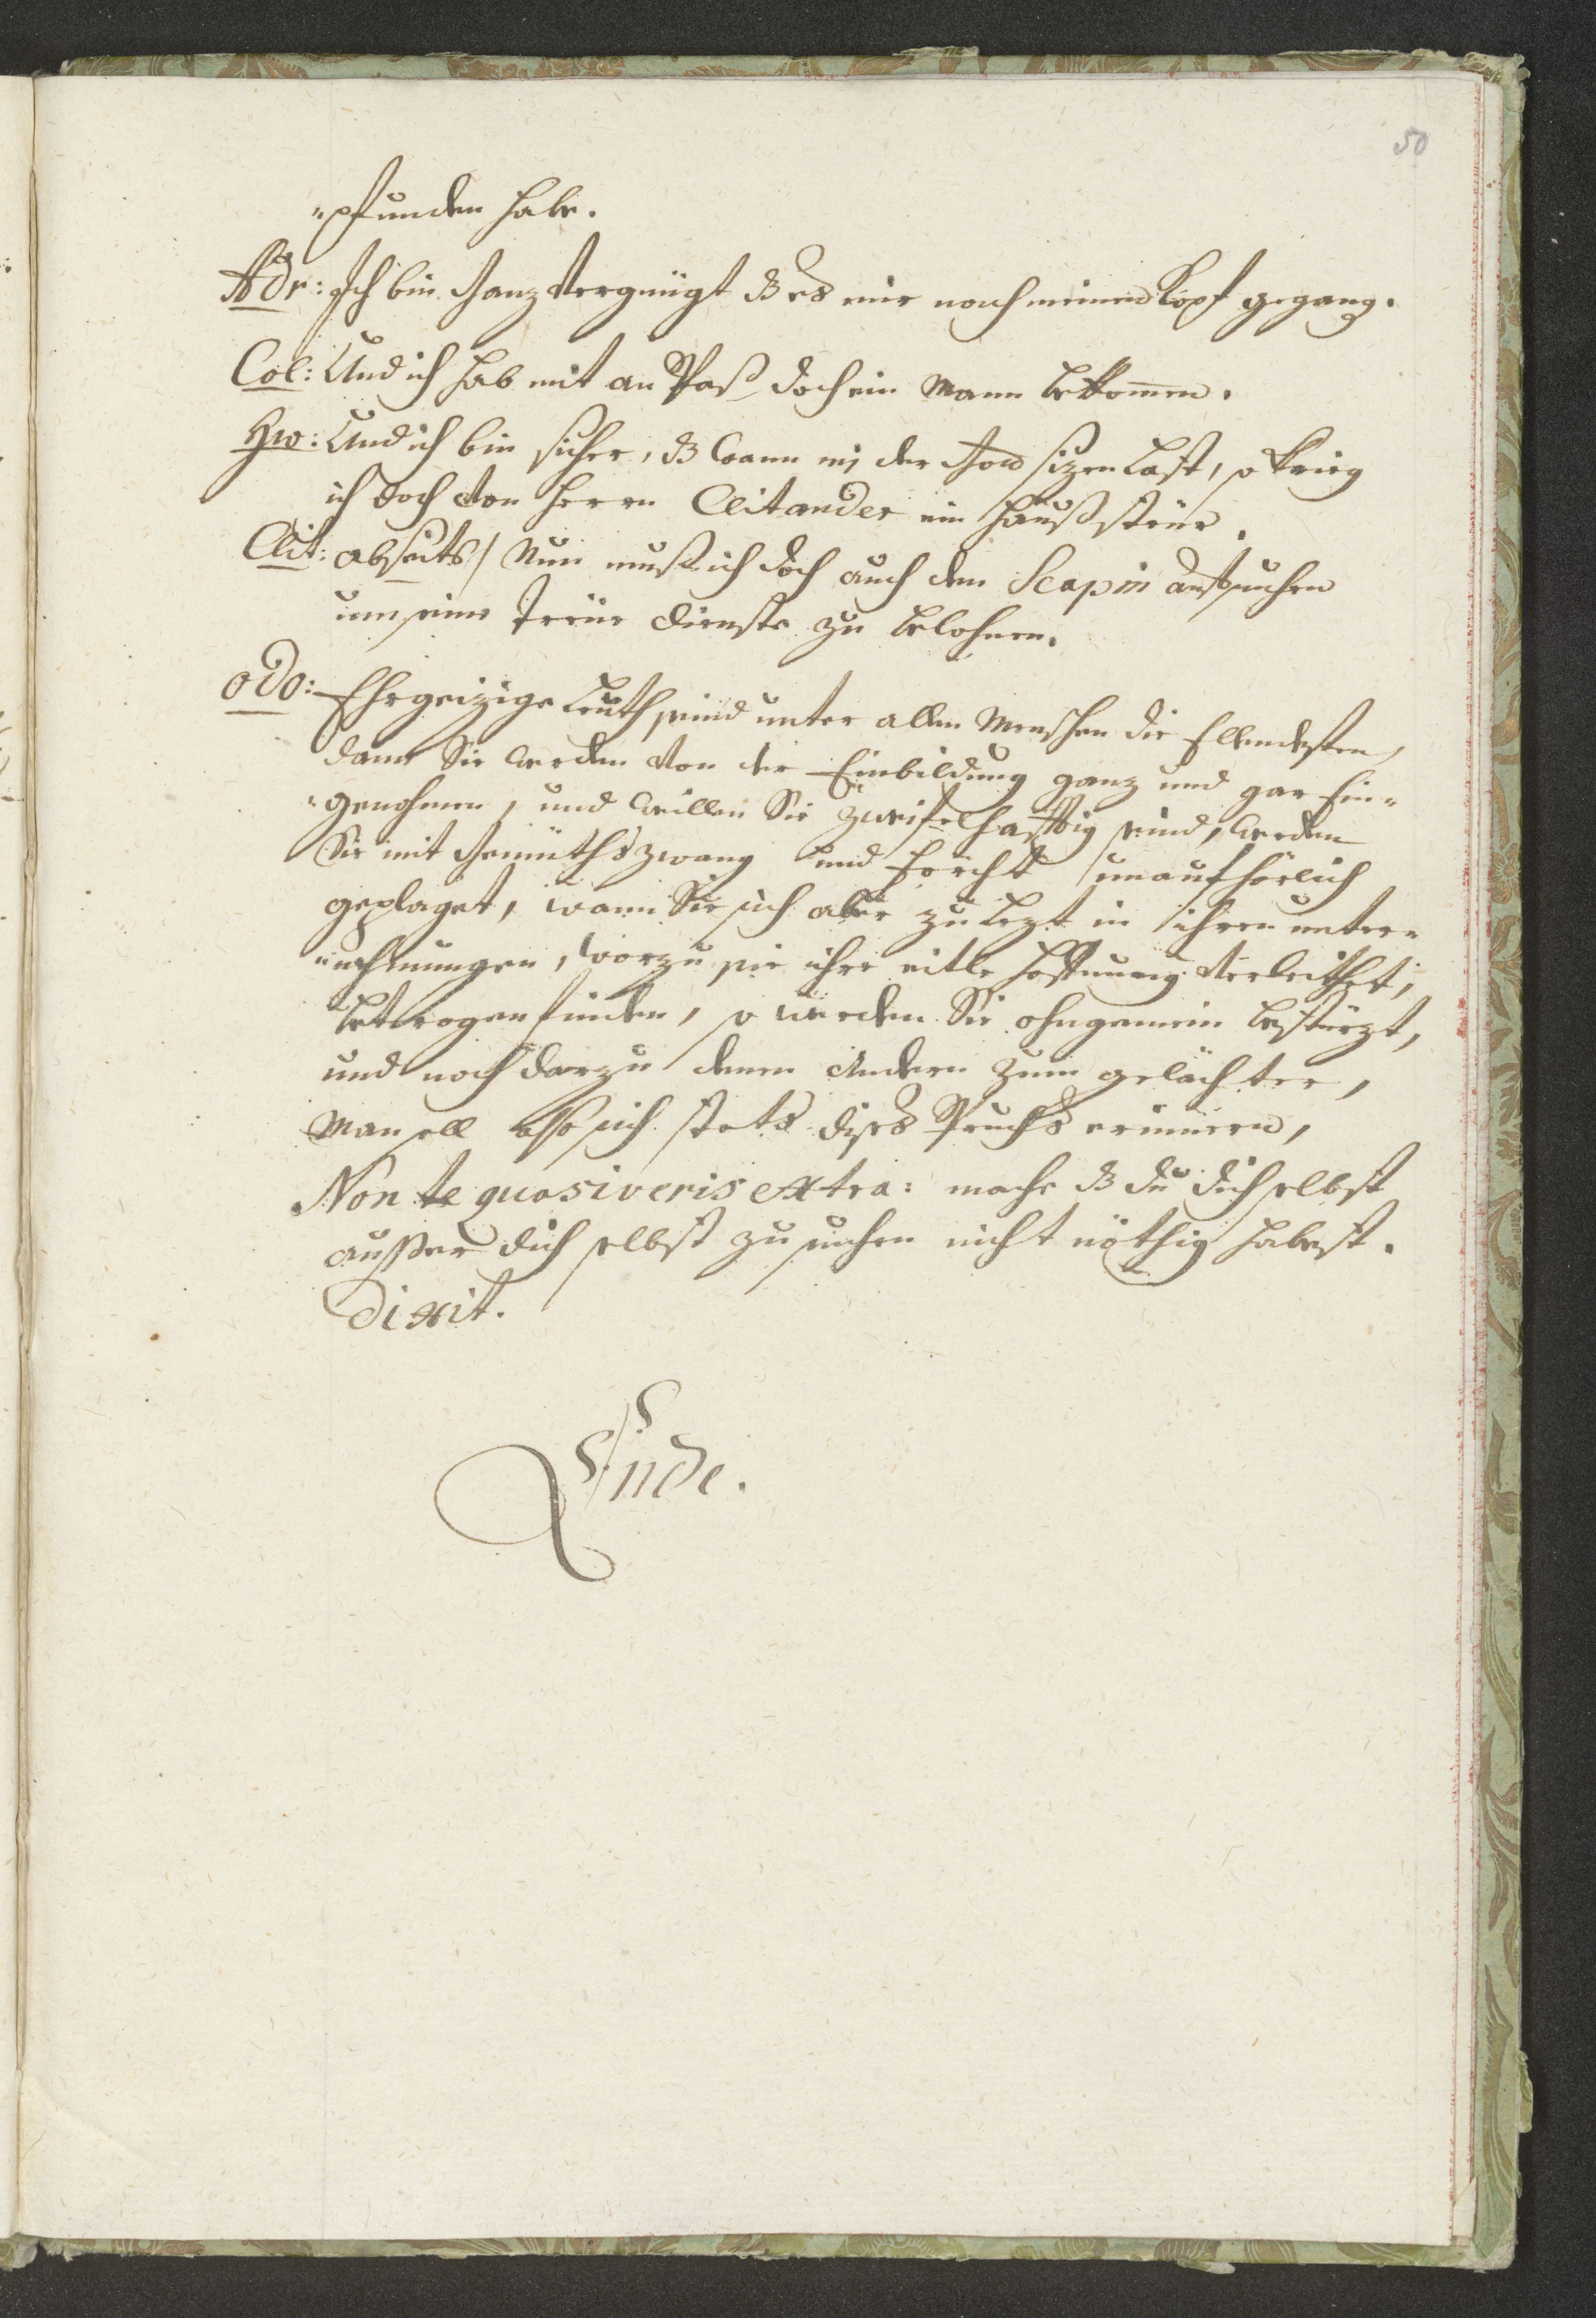 50
„pfunden habe.
Adr: Ich bin Ganz Vergnügt dß es mir nach meinen Kopf gegang.
Col: Und ich hab mit an Spaß doch ein Mann bekomen.
Hw: Und ich bin sicher, dß wann mi der sizen Last, so krieg
ich doch von Herrn Clitander ein Haußsteur.
Clit: abseits / Nun muß ich doch auch den Scapin aufsuchen
um seine Treüe Dienste zu belohnen.
odo: Ehrgeizige Leuth seind unter allen Menschen die Ellendesten,
dann Sie werden von der Einbildung ganz und gar Ein„
„genohmen, und willen Sie Zweifelhafftig seind, werden
Sie mit Gemüthszwang und forcht unaufhörlich
geplaget, wann Sie sich aber zu lezt in ihren unter„
„nehmungen, worzu sie ihre eitle Hoffnung Verleithet,
betrogen finden, so werden Sie ohngemein bestürzt,
und noch darzu denen Andern zum gelächter,
Man soll also sich stets dises Spruchs erinnern,
Non te quasiveris extra: mache dß du dich selbst
ausser dich selbst zu suchen nicht nöthig habest.
Dixit.
Ende.